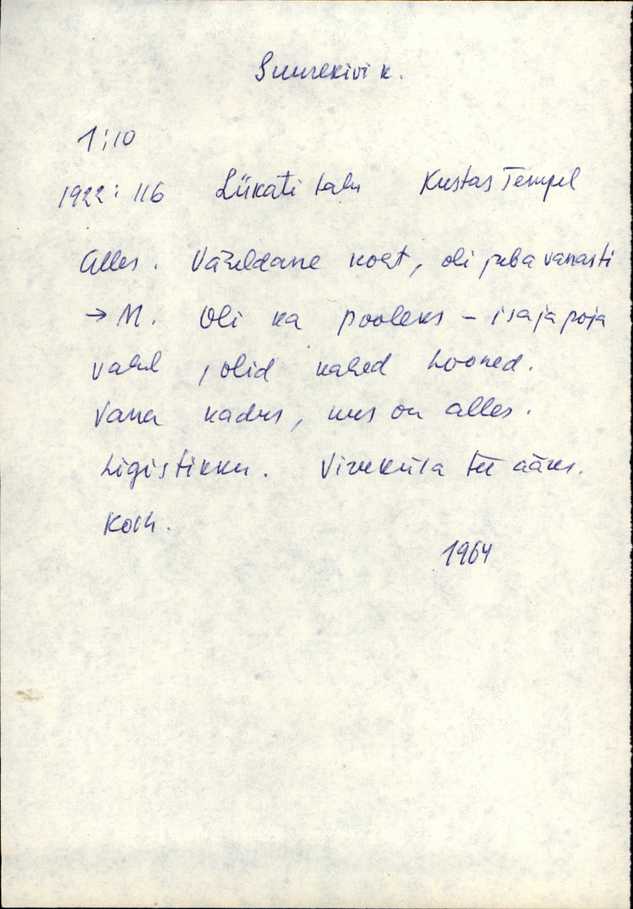 Suurekivi k.
1;10
1922: 116 Liikati talu Kustas Tempel
Alles. koht, oli juba vanasti
→ M. Oli ka pooleks - isa ja poja
vahel, olid kahed hooned.
Vana kadus, uus on alles.
Ligistikku. Viruküla tee ääres.
Koch.
1964